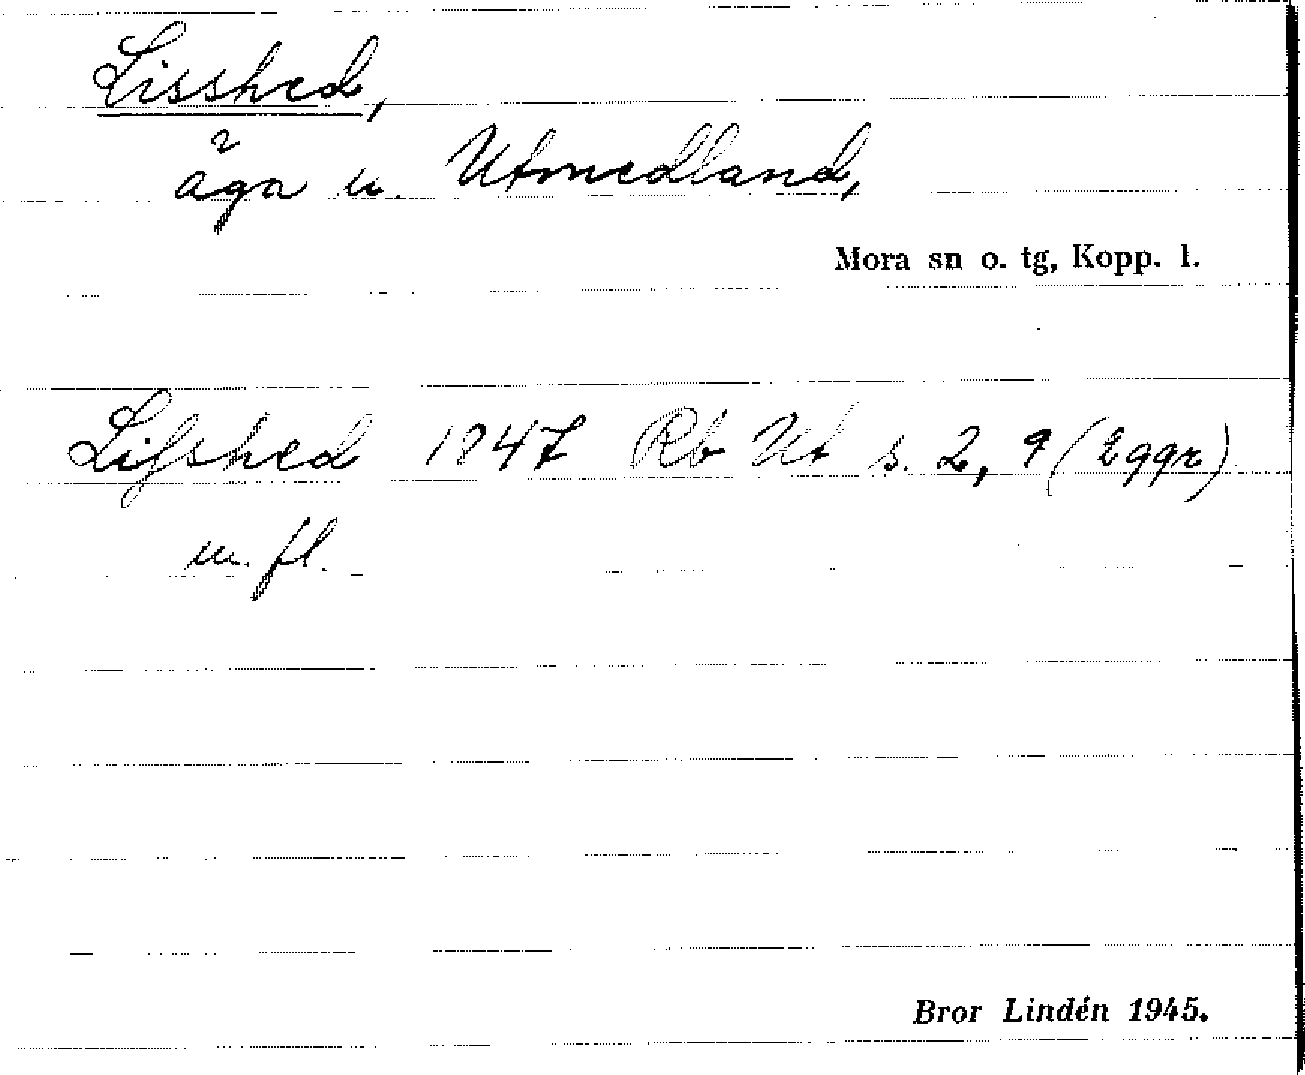 Lisshed,
åga u. Utmedland,
Mora sn o. tg, Kopp. l.
Lifshed 1847 Rb Ut s. 2, 9 (Eggr)
m. fl.
Bror Lindén 1945.